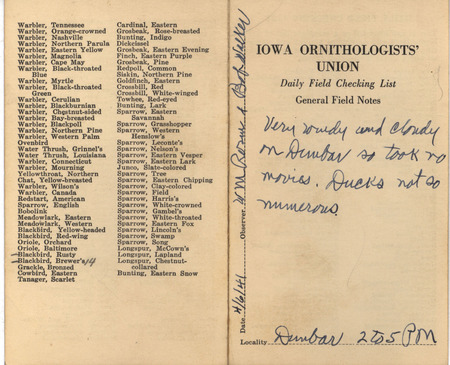 Warbler, Tennessee
Warbler, Orange-crowned
Warbler, Nashville
Warbler, Northern Parula
Warbler, Eastern Yellow
Warbler, Magnolia
Warbler, Cape May
Warbler, Black-throated
Blue
Warbler, Myrtle
Warbler, Black-throated
Green
Warbler, Cerulian
Warbler, Blackburnian
Warbler, Chestnut-sided
Warbler, Bay-breasted
Warbler, Blackpoll
Warbler, Northern Pine
Warbler, Western Palm
Ovenbird
Water Thrush, Grinnel's
Water Thrush, Louisiana
Warbler, Connecticut
Warbler, Mourning
Yellowthroat, Northern
Chat, Yellow-breasted
Warbler, Wilson's
Warbler, Canada
Redstart, American
Sparrow, English
Bobolink
Meadowlark, Eastern
Meadowlark, Western
Blackbird, Yellow-headed
Blackbird, Red-wing
Oriole, Orchard
Oriole, Baltimore
Blackbird, Rusty
Blackbird, Brewer's 14
Grackle, Bronzed
Cowbird, Eastern
Tanager, Scarlet
Cardinal, Eastern
Grosbeak, Rose-breasted
Bunting, Indigo
Dickcissel
Grosbeak, Eastern Evening
Finch, Eastern Purple
Grosbeak, Pine
Redpoll, Common
Siskin, Northern Pine
Goldfinch, Eastern
Crossbill, Red
Crossbill, White-winged
Towhee, Red-eyed
Bunting, Lark
Sparrow, Eastern
Savannah
Sparrow, Grasshopper
Sparrow, Western
Henslow's
Sparrow, Leconte's
Sparrow, Nelson's
Sparrow, Eastern Vesper
Sparrow, Eastern Lark
Junco, Slate-colored
Sparrow, Tree
Sparrow, Eastern Chipping
Sparrow, Clay-colored
Sparrow, Field
Sparrow, Harris's
Sparrow, White-crowned
Sparrow, Gambel's
Sparrow, White-throated
Sparrow, Eastern Fox
Sparrow, Lincoln's
Sparrow, Swamp
Sparrow, Song
Longspur, McCown's
Longspur, Lapland
Longspur, Chestnut-
collared
Bunting, Eastern Snow
IOWA ORNITHOLOGISTS'
UNION
Daily Field Checking List
General Field Notes
Very windy and cloudy
on Dunbar so took no
movies. Ducks not so
numerous.
Date 4/6/41 Observer W M Rosene & Bob Walker
Locality Dunbar 2 to 5 PM